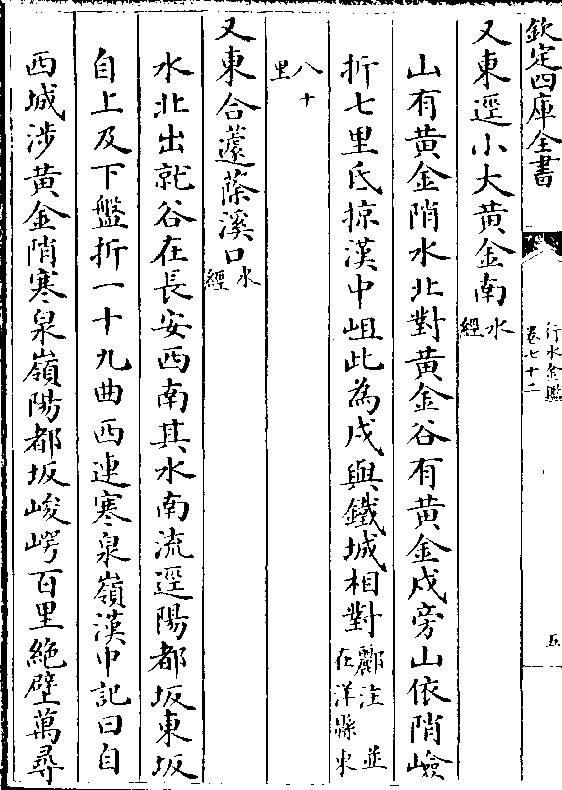 欽定四庫全書
行水金鑑
卷七十二
五
又東逕小大黃金南水經
山有黃金峭水北對黃金谷有黃金戍旁山依峭嶮
折七里氐掠漢中岨此為戍與鐵城相對酈注並在洋縣東
八十里
又東合蘧蒢溪口水經
水北出就谷在長安西南其水南流逕陽都坂東坂
自上及下盤折一十九曲西連寒泉嶺漢中記曰自
西城涉黃金峭寒泉嶺陽都坂峻崿百里絶壁萬尋